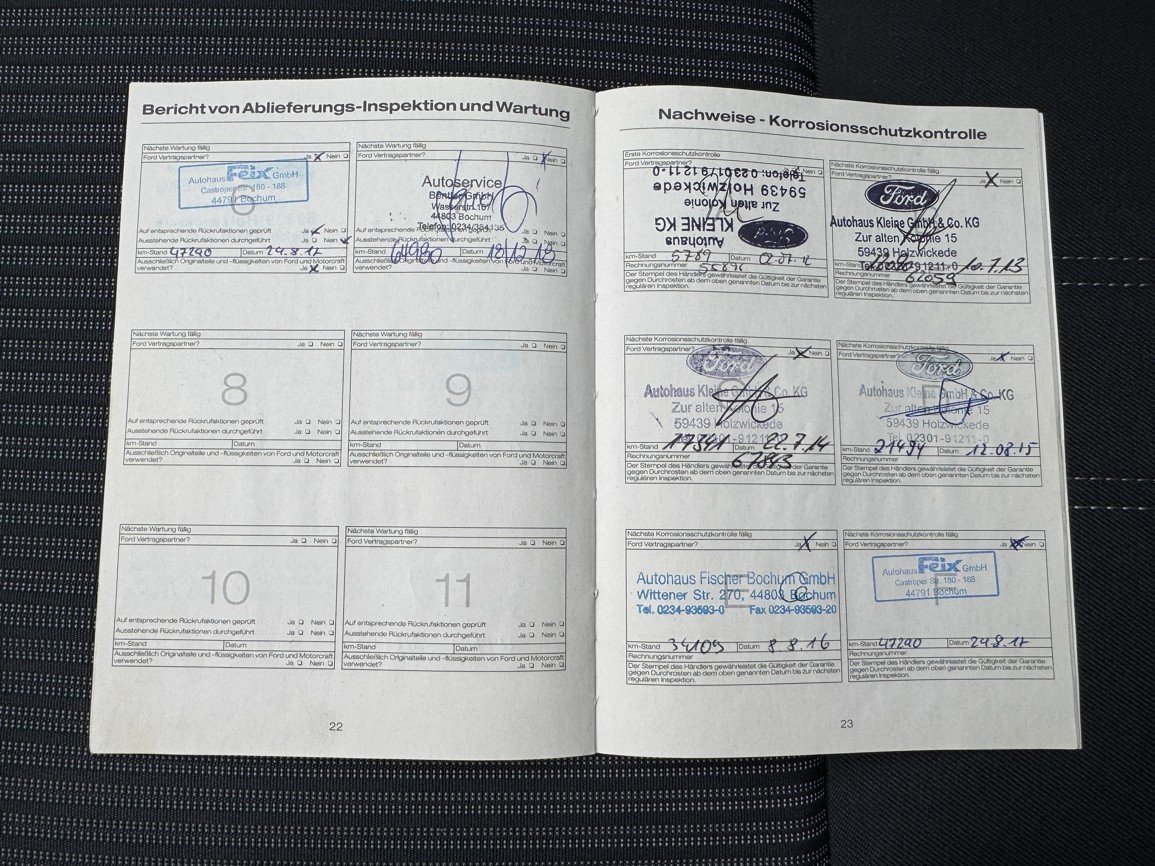 Bericht von Ablieferungs-Inspektion und Wartung
Nächste Wartung fällig
Ford Vertragspartner? Ja Nein
Autohaus Feix GmbH
Castroper Str. 180 - 188
44791 Bochum
Auf entsprechende Rückrufaktionen geprüft Ja Nein
Ausstehende Rückrufaktionen durchgeführt Ja Nein
km-Stand 47290 Datum 29.8.17
Ausschließlich Originalteile und -flüssigkeiten von Ford und Motorcraft
verwendet? Ja Nein
Nächste Wartung fällig
Ford Vertragspartner? Ja Nein
Autoservice
GmbH
Wasserstr.
44803 Bochum
Auf entsprechende Rückrufaktionen geprüft Ja Nein
Ausstehende Rückrufaktionen durchgeführt Ja Nein
km-Stand 64980 Datum 18/12/18
Ausschließlich Originalteile und -flüssigkeiten von Ford und Motorcraft
verwendet? Ja Nein
Nächste Wartung fällig
Ford Vertragspartner? Ja Nein
8
Auf entsprechende Rückrufaktionen geprüft Ja Nein
Ausstehende Rückrufaktionen durchgeführt Ja Nein
km-Stand Datum
Ausschließlich Originalteile und -flüssigkeiten von Ford und Motorcraft
verwendet? Ja Nein
Nächste Wartung fällig
Ford Vertragspartner? Ja Nein
9
Auf entsprechende Rückrufaktionen geprüft Ja Nein
Ausstehende Rückrufaktionen durchgeführt Ja Nein
km-Stand Datum
Ausschließlich Originalteile und -flüssigkeiten von Ford und Motorcraft
verwendet? Ja Nein
Nächste Wartung fällig
Ford Vertragspartner? Ja Nein
10
Auf entsprechende Rückrufaktionen geprüft Ja Nein
Ausstehende Rückrufaktionen durchgeführt Ja Nein
km-Stand Datum
Ausschließlich Originalteile und -flüssigkeiten von Ford und Motorcraft
verwendet? Ja Nein
Nächste Wartung fällig
Ford Vertragspartner? Ja Nein
11
Auf entsprechende Rückrufaktionen geprüft Ja Nein
Ausstehende Rückrufaktionen durchgeführt Ja Nein
km-Stand Datum
Ausschließlich Originalteile und -flüssigkeiten von Ford und Motorcraft
verwendet? Ja Nein
22
Nachweise - Korrosionsschutzkontrolle
Erste Korrosionsschutzkontrolle
Ford Vertragspartner?
Ford
Autohaus
KLEINE KG
Zur alten Kolonie
59439 Holzwickede
Telefon: 02301/91211-0
km-Stand 5789 Datum 02.07.12
Rechnungsnummer
Der Stempel des Händlers gewährleistet die Gültigkeit der Garantie
gegen Durchrosten ab dem oben genannten Datum bis zur nächsten
regulären Inspektion.
Nächste Korrosionsschutzkontrolle fällig
Ford Vertragspartner? Ja Nein
Ford
Autohaus Kleine GmbH & Co. KG
Zur alten Kolonie 15
59439 Holzwickede
km-Stand Datum 10.7.13
Rechnungsnummer 62059
Der Stempel des Händlers gewährleistet die Gültigkeit der Garantie
gegen Durchrosten ab dem oben genannten Datum bis zur nächsten
regulären Inspektion.
Nächste Korrosionsschutzkontrolle fällig
Ford Vertragspartner? Ja Nein
Ford
Autohaus Kleine GmbH & Co. KG
Zur alten Kolonie 15
59439 Holzwickede
km-Stand 17341 Datum 22.7.14
Rechnungsnummer 67843
Der Stempel des Händlers gewährleistet die Gültigkeit der Garantie
gegen Durchrosten ab dem oben genannten Datum bis zur nächsten
regulären Inspektion.
Nächste Korrosionsschutzkontrolle fällig
Ford Vertragspartner? Ja Nein
Ford
Autohaus Kleine GmbH & Co. KG
Zur alten Kolonie 15
59439 Holzwickede
Tel. 02301-91211-0
km-Stand 21494 Datum 12.08.15
Rechnungsnummer
Der Stempel des Händlers gewährleistet die Gültigkeit der Garantie
gegen Durchrosten ab dem oben genannten Datum bis zur nächsten
regulären Inspektion.
Nächste Korrosionsschutzkontrolle fällig
Ford Vertragspartner? Ja Nein
E
Autohaus Fischer Bochum GmbH
Wittener Str. 270, 44803 Bochum
Tel. 0234-93593-0 Fax 0234-93593-20
km-Stand 34109 Datum 8 8.16
Rechnungsnummer
Der Stempel des Händlers gewährleistet die Gültigkeit der Garantie
gegen Durchrosten ab dem oben genannten Datum bis zur nächsten
regulären Inspektion.
Nächste Korrosionsschutzkontrolle fällig
Ford Vertragspartner? Ja Nein
F
Autohaus Feix GmbH
Castroper Str. 180 - 188
44791 Bochum
km-Stand 47290 Datum 29.8.17
Rechnungsnummer
Der Stempel des Händlers gewährleistet die Gültigkeit der Garantie
gegen Durchrosten ab dem oben genannten Datum bis zur nächsten
regulären Inspektion.
23